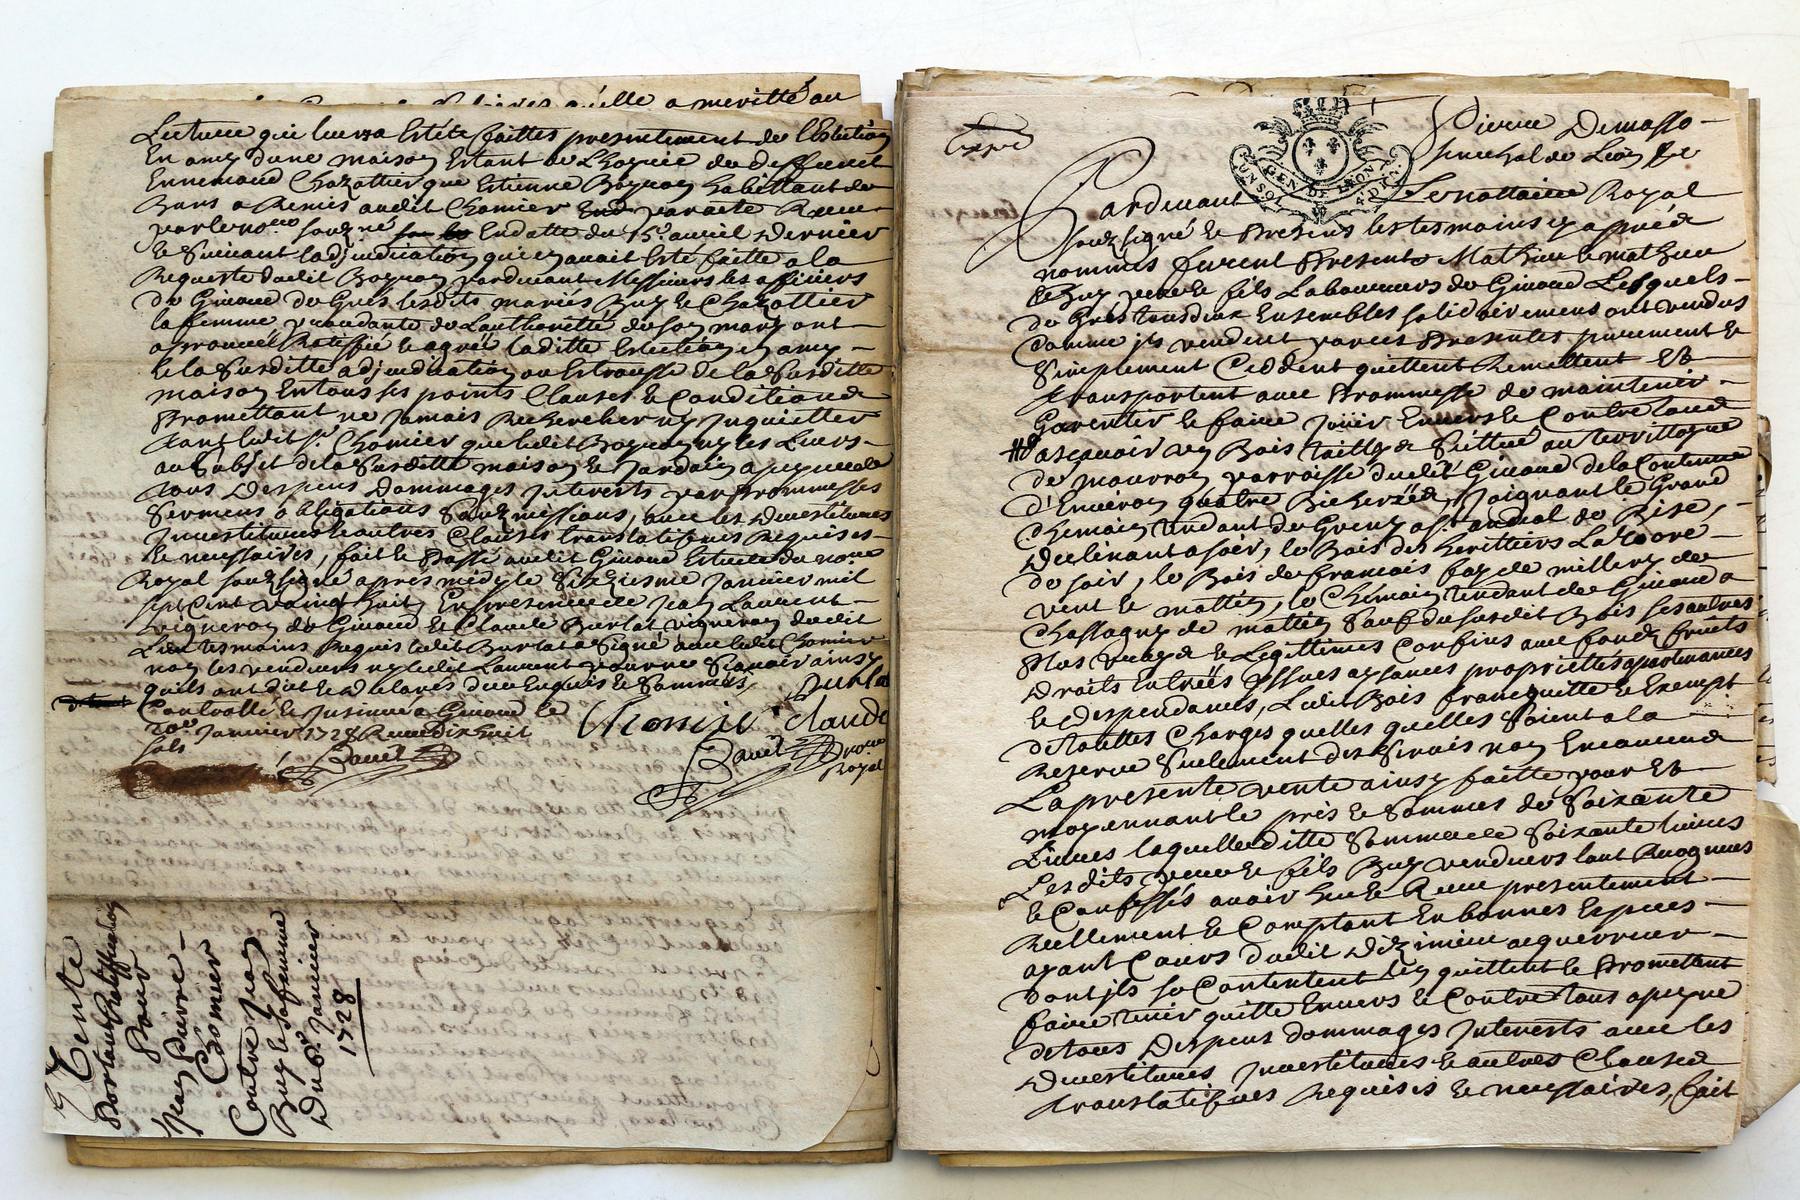 qu'elle a merittée au
Lecture qui leur a Estée faittes presentement de l'Election
En amy d'une maison Estant de L'hoyrie de deffunct
Ennemond Chazottier que Etienne Boyron habittant de
a Remis audit Chomier par acte Receu
par le no.re souzné En datte du 15.e avril Dernier
Ensuivant l'adjudication qui en avoit Esté faitte a la
Requeste dudit Boyron pardevant Messieurs les officiers
de Givord lesdits mariés Buy et Chazottier
la femme procedante de L'authorité de son mary ont
approuvé Ratiffié et agréé laditte Election en amy
et la Susditte adjudication ou Estrousse de la Susditte
maison En tous ses points Clauses et Conditions
Promettant ne Jamais Rechercher ny Inquietter
tant ledit S.r Chomier que ledit Boyron ny les Leurs
au Subjet de la Susditte maison et Jardin a peyne de
tous Despens Dommages Interests par Prommesses
Sermens obligations Soumissions, avec les Devestitures
Investitures et autres Clauses translatifves Requises
et necessaires, fait et Passé audit Givord Estude du no.re
Royal souzsigné apres midy le Sixziesme Janvier mil
sept Cent vaingt huit En presence de Jean Laurent
vigneron de Givord et Claude Burlat vigneron dudit
Lieu tesmoins Requis ledit Burlat a Signé avec ledit Chomier
non les vendeurs ny ledit Laurent pour ne Sçavoir ainsy
qu'ils ont dit et Declaré de ce Enquis et Sommés
Controllé et Insinué a Givord le
Janvier 1728 Receu dix huit
sols
Chomier Claude
Burla
Royal
Vente
Portant Ratiffication
Pour
Jean Pierre
Chomier
Contre Jean
Buy et sa femme
Du 6.e Janvier
1728
GEN DE LION
Pierre Demasso
seneschal de Lion
Pardevant Le nottaire Royal
souzsigné et Presens les tesmoins cy apres
nommés furent Presents Mathieu et mathieu
Buy pere et fils Laboureurs de Givord Lesquels
de Grés tous deux Ensembles solidairement ont vendus
Comme ils vendent par ces Presentes purement et
Simplement Ceddent quittent Remettent Et
transportent avec Prommesse de maintenir
Garentir et faire Jouir Envers et Contre tous
a sçavoir un Bois taillys Sittué au territtoyre
de mourron parroisse dudit Givord de la Contenue
d'Environ quatre Bicherées, Joignant le Grand
Chemain tendant de Grenz a de Bise,
Declinant a soir, le Bois des herittiers La
de soir, le Bois de francois fay de millery de
vent et mattin, le Chemain tendant de Givord a
Chassagny de mattin Sauf du susdit Bois ses autres
plus vrays et Legitimes Confins avec fondz fruits
Droits Entrées Issues aysances proprietés apartenances
et despendances, Ledit Bois francq quitte et Exempt
de touttes Charges quelles quelles Soient a la
Reserve Seulement des Servis non Encourus
La presente vente ainsy faitte pour Et
moyennant le prés et Somme de Soixante
Livres laquelleditte Somme de Soixante livres
Lesdits pere et fils Buy vendeurs lont Recognus
et Confessés avoir heu et Receu presentement
Reellement et Comptant En bonnes Especes
ayant Cours dudit acquerreur
dont ils se Contentent l'en quittent et Promettent
faire tenir quitte Envers et Contre tous a peyne
de tous Despens Dommages Interests avec les
Devestitures Investitures et autres Clauses
translatifves Requises et necessaires, fait